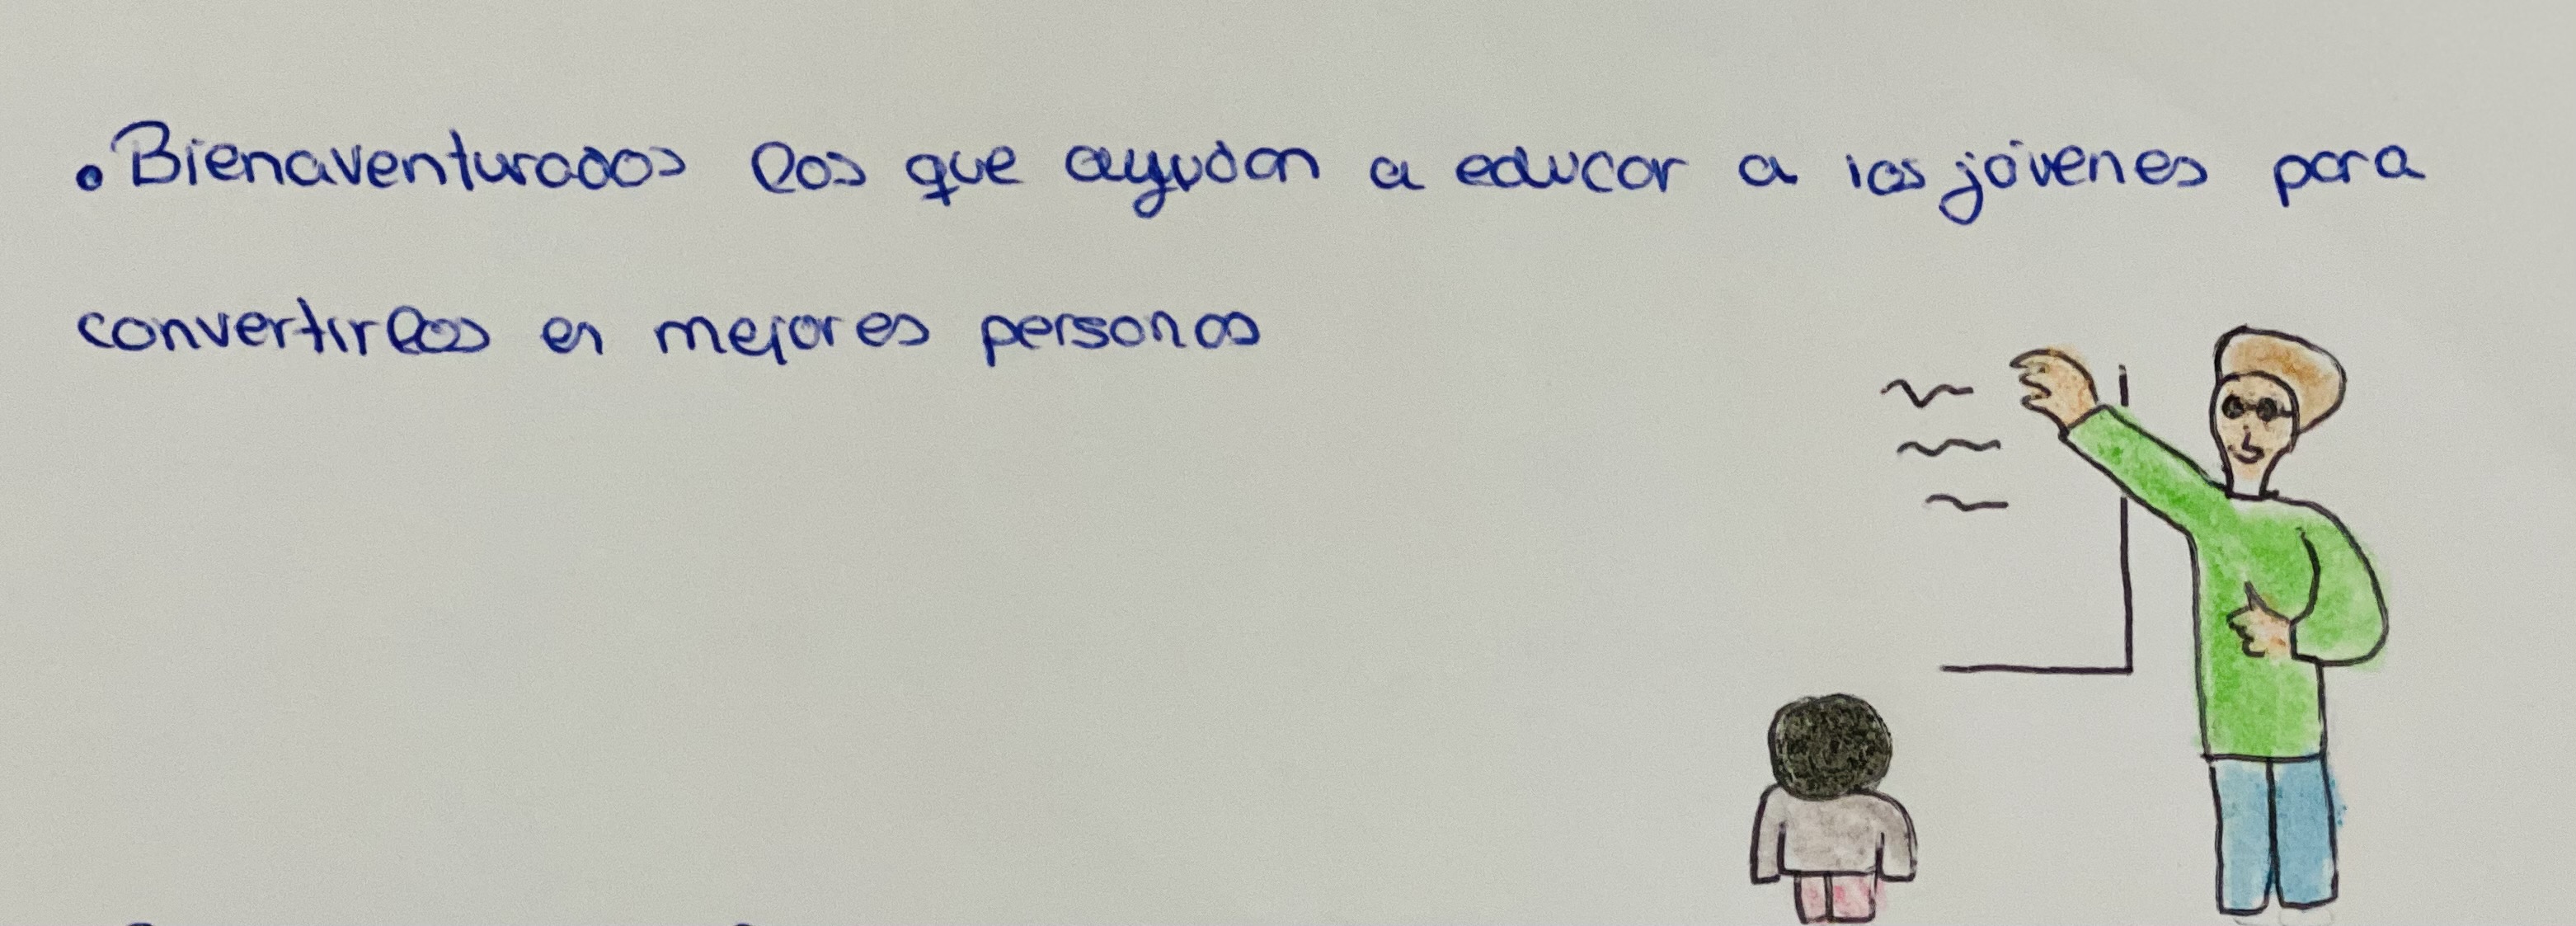 • Bienaventurados los que ayudan a educar a los jóvenes para
convertirlos en mejores personas